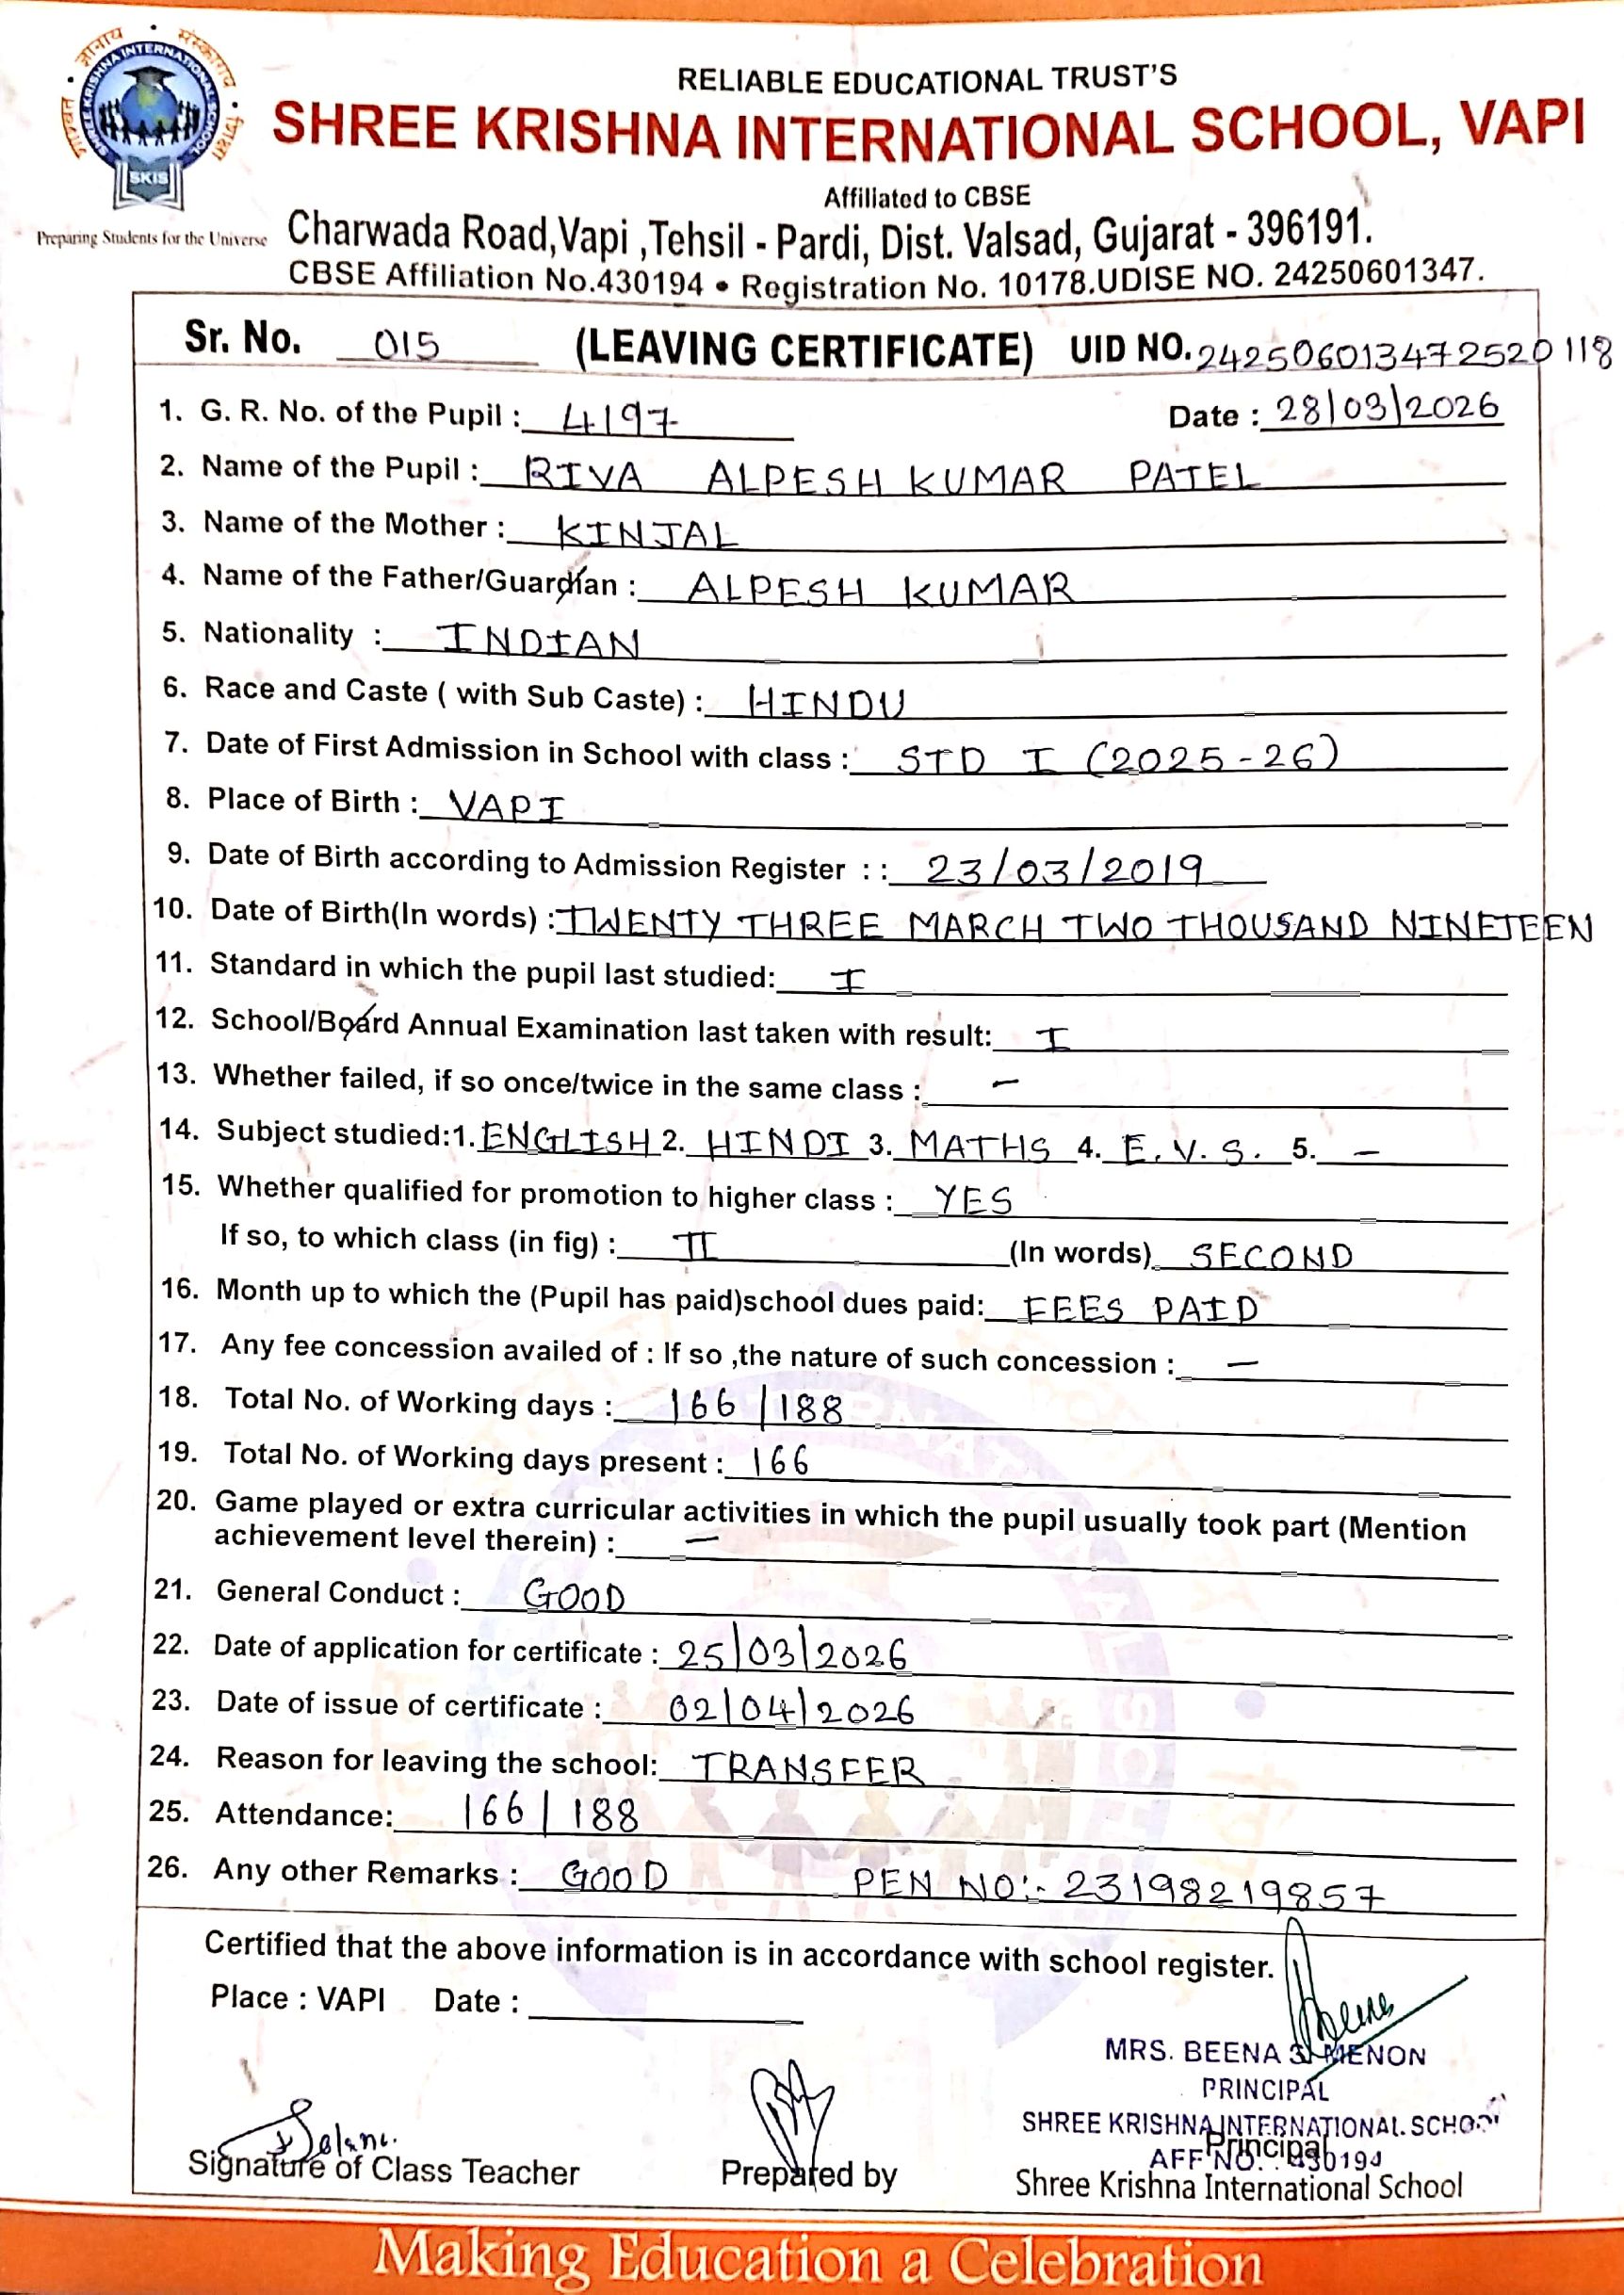 RELIABLE EDUCATIONAL TRUST'S
SHREE KRISHNA INTERNATIONAL SCHOOL, VAPI
SHREE KRISHNA INTERNATIONAL SCHOOL
SKIS
Preparing Students for the Universe
Affiliated to CBSE
Charwada Road,Vapi ,Tehsil - Pardi, Dist. Valsad, Gujarat - 396191.
CBSE Affiliation No.430194 • Registration No. 10178.UDISE NO. 24250601347.
Sr. No. 015 (LEAVING CERTIFICATE) UID NO. 242506013472520118
1. G. R. No. of the Pupil : 4197 Date : 28/03/2026
2. Name of the Pupil : RIVA ALPESH KUMAR PATEL
3. Name of the Mother : KINJAL
4. Name of the Father/Guardian : ALPESH KUMAR
5. Nationality : INDIAN
6. Race and Caste ( with Sub Caste) : HINDU
7. Date of First Admission in School with class : STD I (2025-26)
8. Place of Birth : VAPI
9. Date of Birth according to Admission Register : : 23/03/2019
10. Date of Birth(In words) : TWENTY THREE MARCH TWO THOUSAND NINETEEN
11. Standard in which the pupil last studied: I
12. School/Board Annual Examination last taken with result: I
13. Whether failed, if so once/twice in the same class : -
14. Subject studied:1. ENGLISH 2. HINDI 3. MATHS 4. E.V.S. 5. -
15. Whether qualified for promotion to higher class : YES
If so, to which class (in fig) : II (In words) SECOND
16. Month up to which the (Pupil has paid)school dues paid: FEES PAID
17. Any fee concession availed of : If so ,the nature of such concession : -
18. Total No. of Working days : 166/188
19. Total No. of Working days present : 166
20. Game played or extra curricular activities in which the pupil usually took part (Mention
achievement level therein) : -
21. General Conduct : GOOD
22. Date of application for certificate : 25/03/2026
23. Date of issue of certificate : 02/04/2026
24. Reason for leaving the school: TRANSFER
25. Attendance: 166/188
26. Any other Remarks : GOOD PEN NO:- 23198219857
Certified that the above information is in accordance with school register.
Place : VAPI Date :
MRS. BEENA S. MENON
PRINCIPAL
SHREE KRISHNA INTERNATIONAL SCHOOL
AFF NO. : 430194
Signature of Class Teacher Prepared by Principal
Shree Krishna International School
Making Education a Celebration